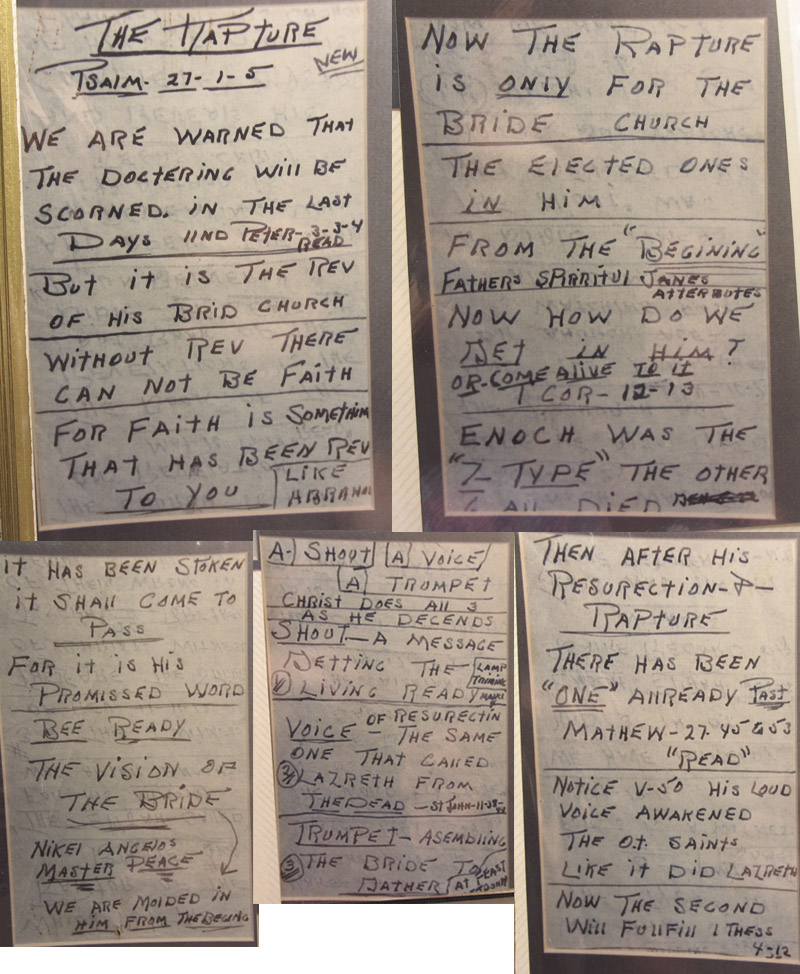 THE RAPTURE
NEW
PSAlM- 27-1-5
WE ARE WARNED THAT
THE DOCTERING Will BE
SCORNED. IN THE LAST
DAYS IIND PETER-3-3-4
READ
BUT it iS THE REV
OF HiS BRiD CHURCH
WiTHOUT REV THERE
CAN NOT BE FAiTH
FOR FAiTH iS SOMETHiN
THAT HAS BEEN REV
TO YOU
LiKE
ABRAHAM
NOW THE RAPTURE
iS ONlY FOR THE
BRiDE CHURCH
THE ElECTED ONES
iN HiM
FROM THE "BEGiNiNG"
FATHERS SPiRRiTUl
ATTERBUTES
NOW HOW DO WE
GET iN HiM?
OR-COME AliVE TO iT
I COR-12-13
ENOCH WAS THE
"7-TYPE" THE OTHER
All DiED
iT HAS BEEN SPOKEN
iT SHAll COME TO
PASS
FOR iT iS HiS
PROMiSSED WORD
BEE READY
THE ViSiON OF
THE BRiDE
NiKEl ANGElOS
MASTER PEACE
WE ARE MOlDED iN
HiM, FROM THE BEGiNG
A-) SHOUT (A) VOiCE
(A) TRUMPET
CHRiST DOES All 3
AS HE DECENDS
SHOUT-A MESSAGE
GETTiNG THE
LAMP
TRiMiNG
① LiViNG READY
VOiCE - OF RESURECTiN
THE SAME
ONE THAT CAllED
② LAZRETH FROM
THE DEAD - ST JOHN-11-38-
TRUMPET-ASEMBliNG
③ THE BRiDE TO
GATHER
AT FEAST
THEN AFTER HiS
RESURECTiON-&-
RAPTURE
THERE HAS BEEN
"ONE" AllREADY PAST
MATHEW-27. 45 & 53
"READ"
NOTiCE V-50 HiS LOUD
VOiCE AWAKENED
THE O.T. SAiNTS
LiKE iT DiD LAZRETH
NOW THE SECOND
Will FUllFill I THESS
4-